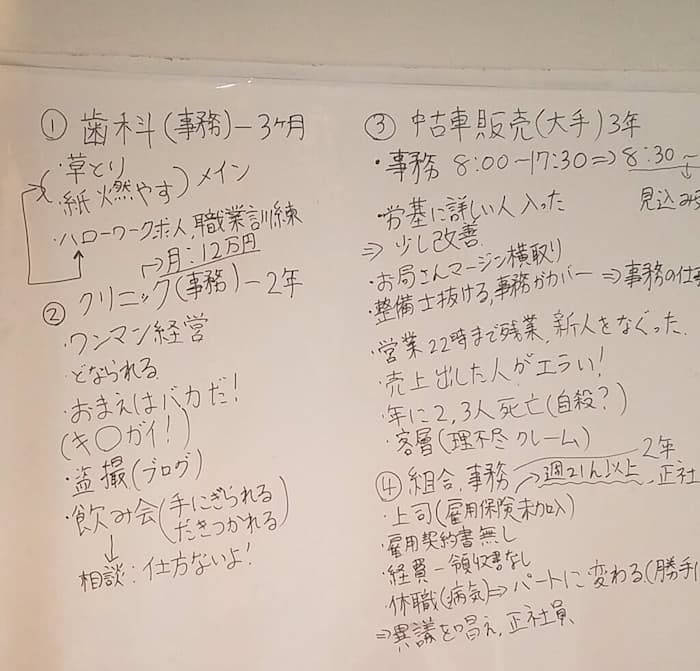 ① 歯科(事務)－3ヶ月
・草とり
・紙燃やす) メイン
・ハローワーク求人, 職業訓練
→月:12万円
② クリニック(事務)－2年
・ワンマン経営
・どなられる
・おまえはバカだ!
(キ○ガイ!)
・盗撮(ブログ)
・飲み会(手にぎられる
だきつかれる)
↓
相談:仕方ないよ!
③ 中古車販売(大手)3年
・事務 8:00－17:30⇒8:30～
↓
見込み
・労基に詳しい人入った
⇒ 少し改善
・お局さんマージン横取り
・整備士抜ける, 事務がカバー ⇒事務の仕事
・営業22時まで残業, 新人をなぐった.
・売上出した人がエラい!
・年に2,3人死亡(自殺?)
・客層(理不尽クレーム)
④ 組合, 事務 2年
→週21h以上, 正社
・上司(雇用保険未加入)
・雇用契約書無し
・経費－領収書なし
・休職(病気)⇒パートに変わる.(勝手に
⇒異議を唱え, 正社員